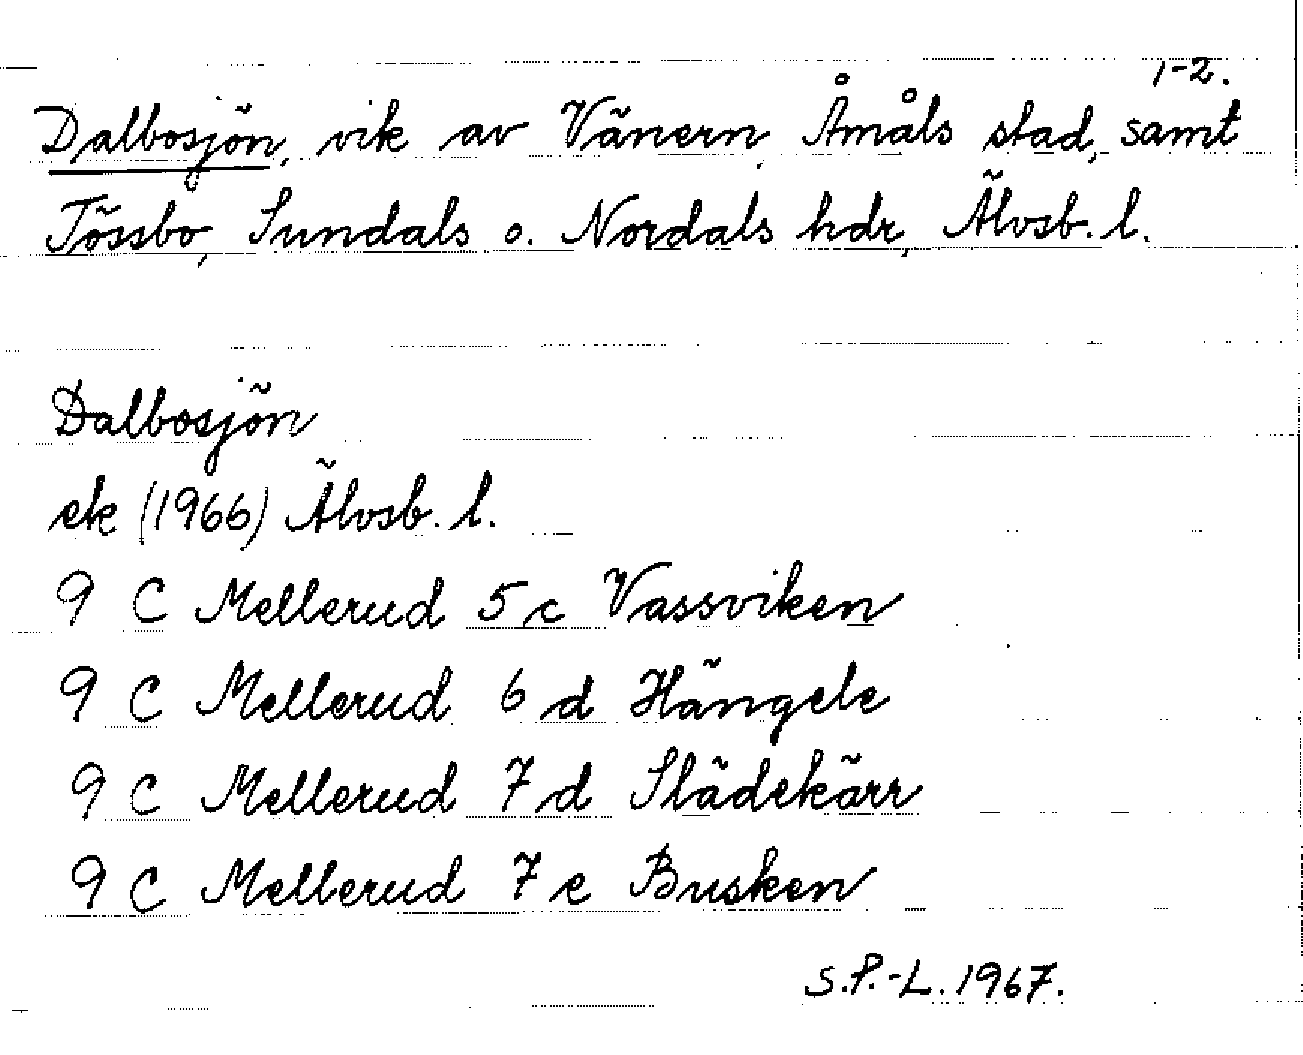 1-2.
Dalbosjön, vik av Vänern, Åmåls stad, samt
Tössbo, Sundals o. Nordals hdr, Älvsb. l.
Dalbosjön
ek (1966) Älvsb. l.
9 C Mellerud 5 c Vassviken
9 C Mellerud 6 d Hängele
9 C Mellerud 7 d Slädekärr
9 C Mellerud 7 e Busken
S.P.-L. 1967.